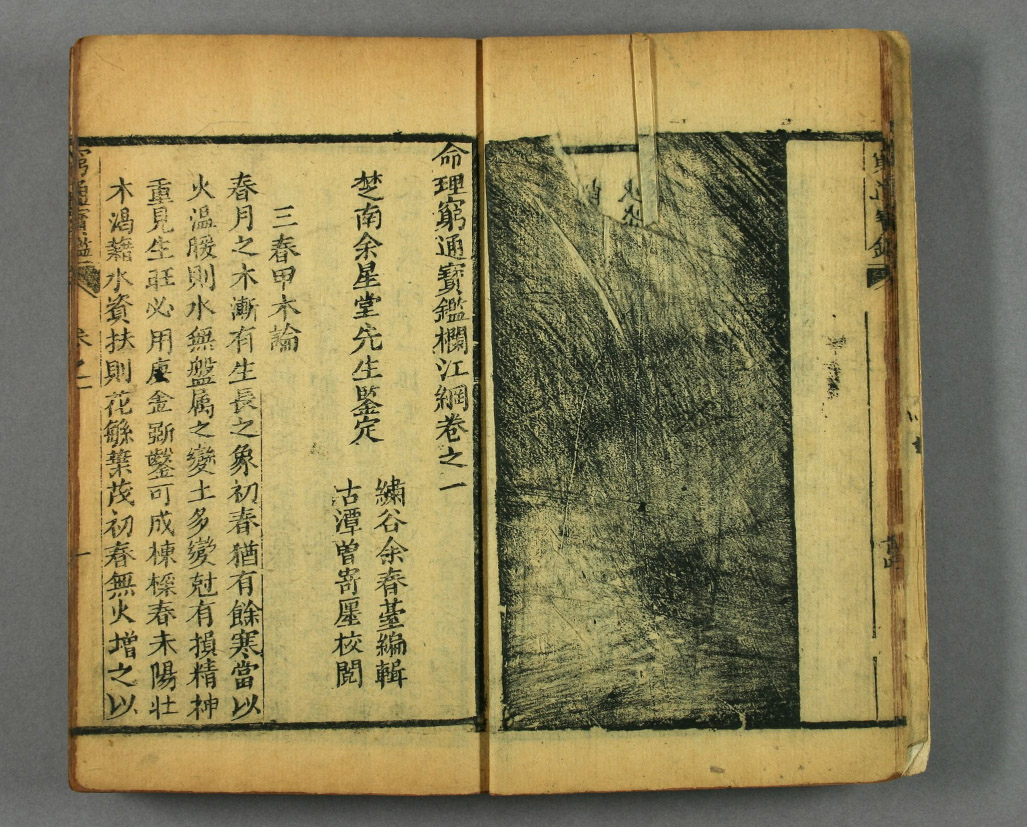 命理窮通寶鑑欄江綱卷之一
楚南余星堂先生鑒定
繡谷余春䑓編輯
古潭曾寄厘校閲
三春甲木論
春月之木漸有生長之象初春猶有餘寒當以
火温暖則水無盤属之變土多變尅有損精神
重見生旺必用庚金斵鑿可成棟樑春未陽壯
木渴藉水資扶則花繁葉茂初春無火增之以
窮通寶鑑
卷之一
一